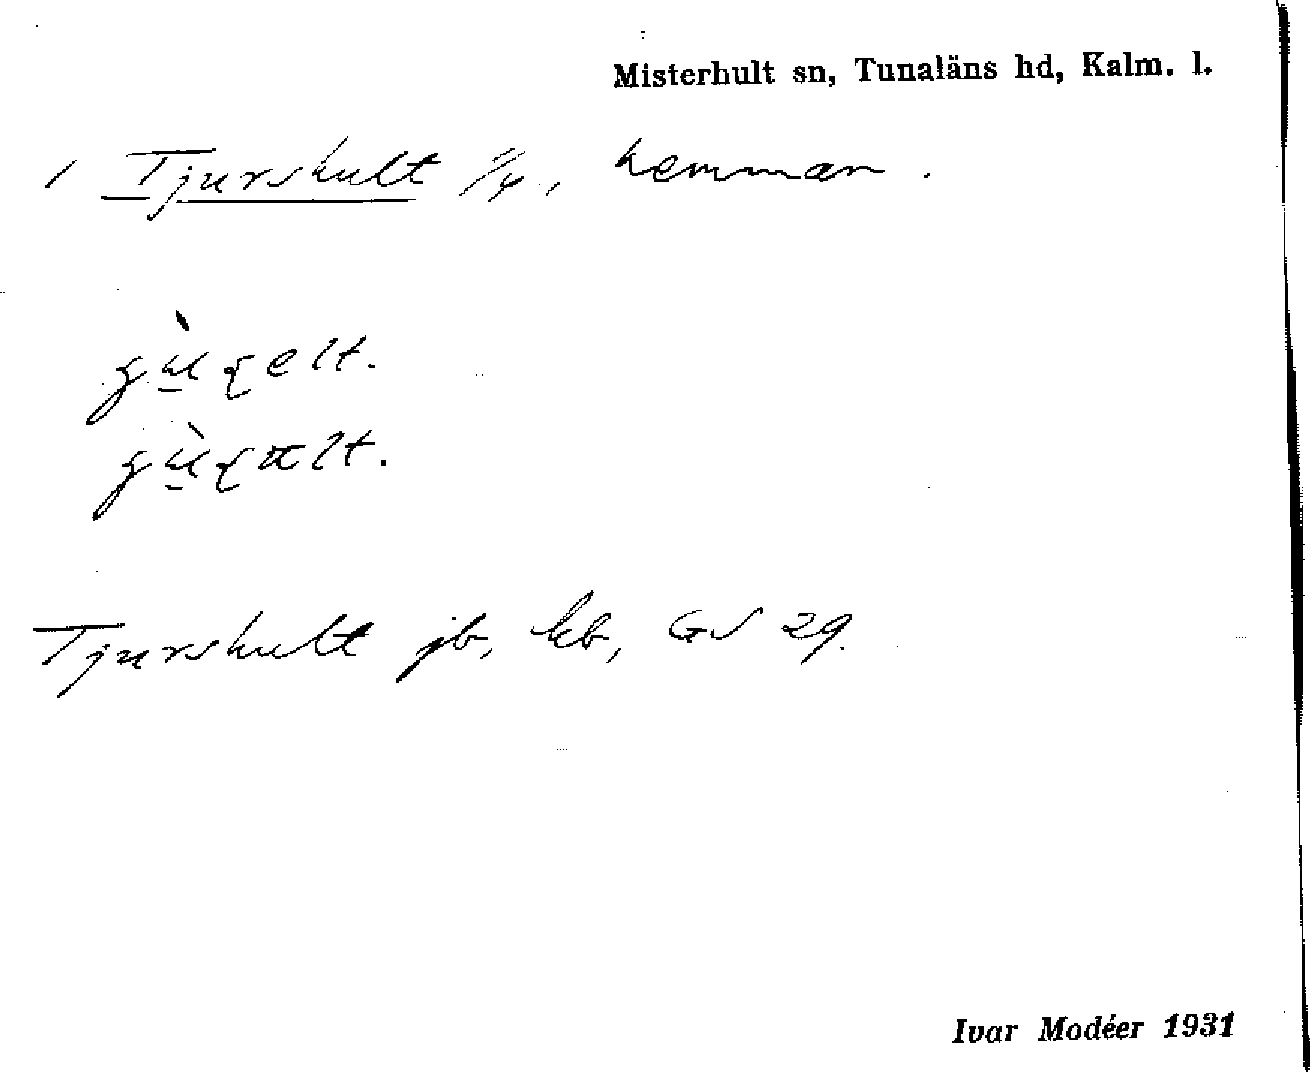 Misterhult sn, Tunaläns hd, Kalm. l.
1 Tjurshult 1/4, hemman.
Tjurshult jb, kb, GS 29.
Ivar Modéer 1931